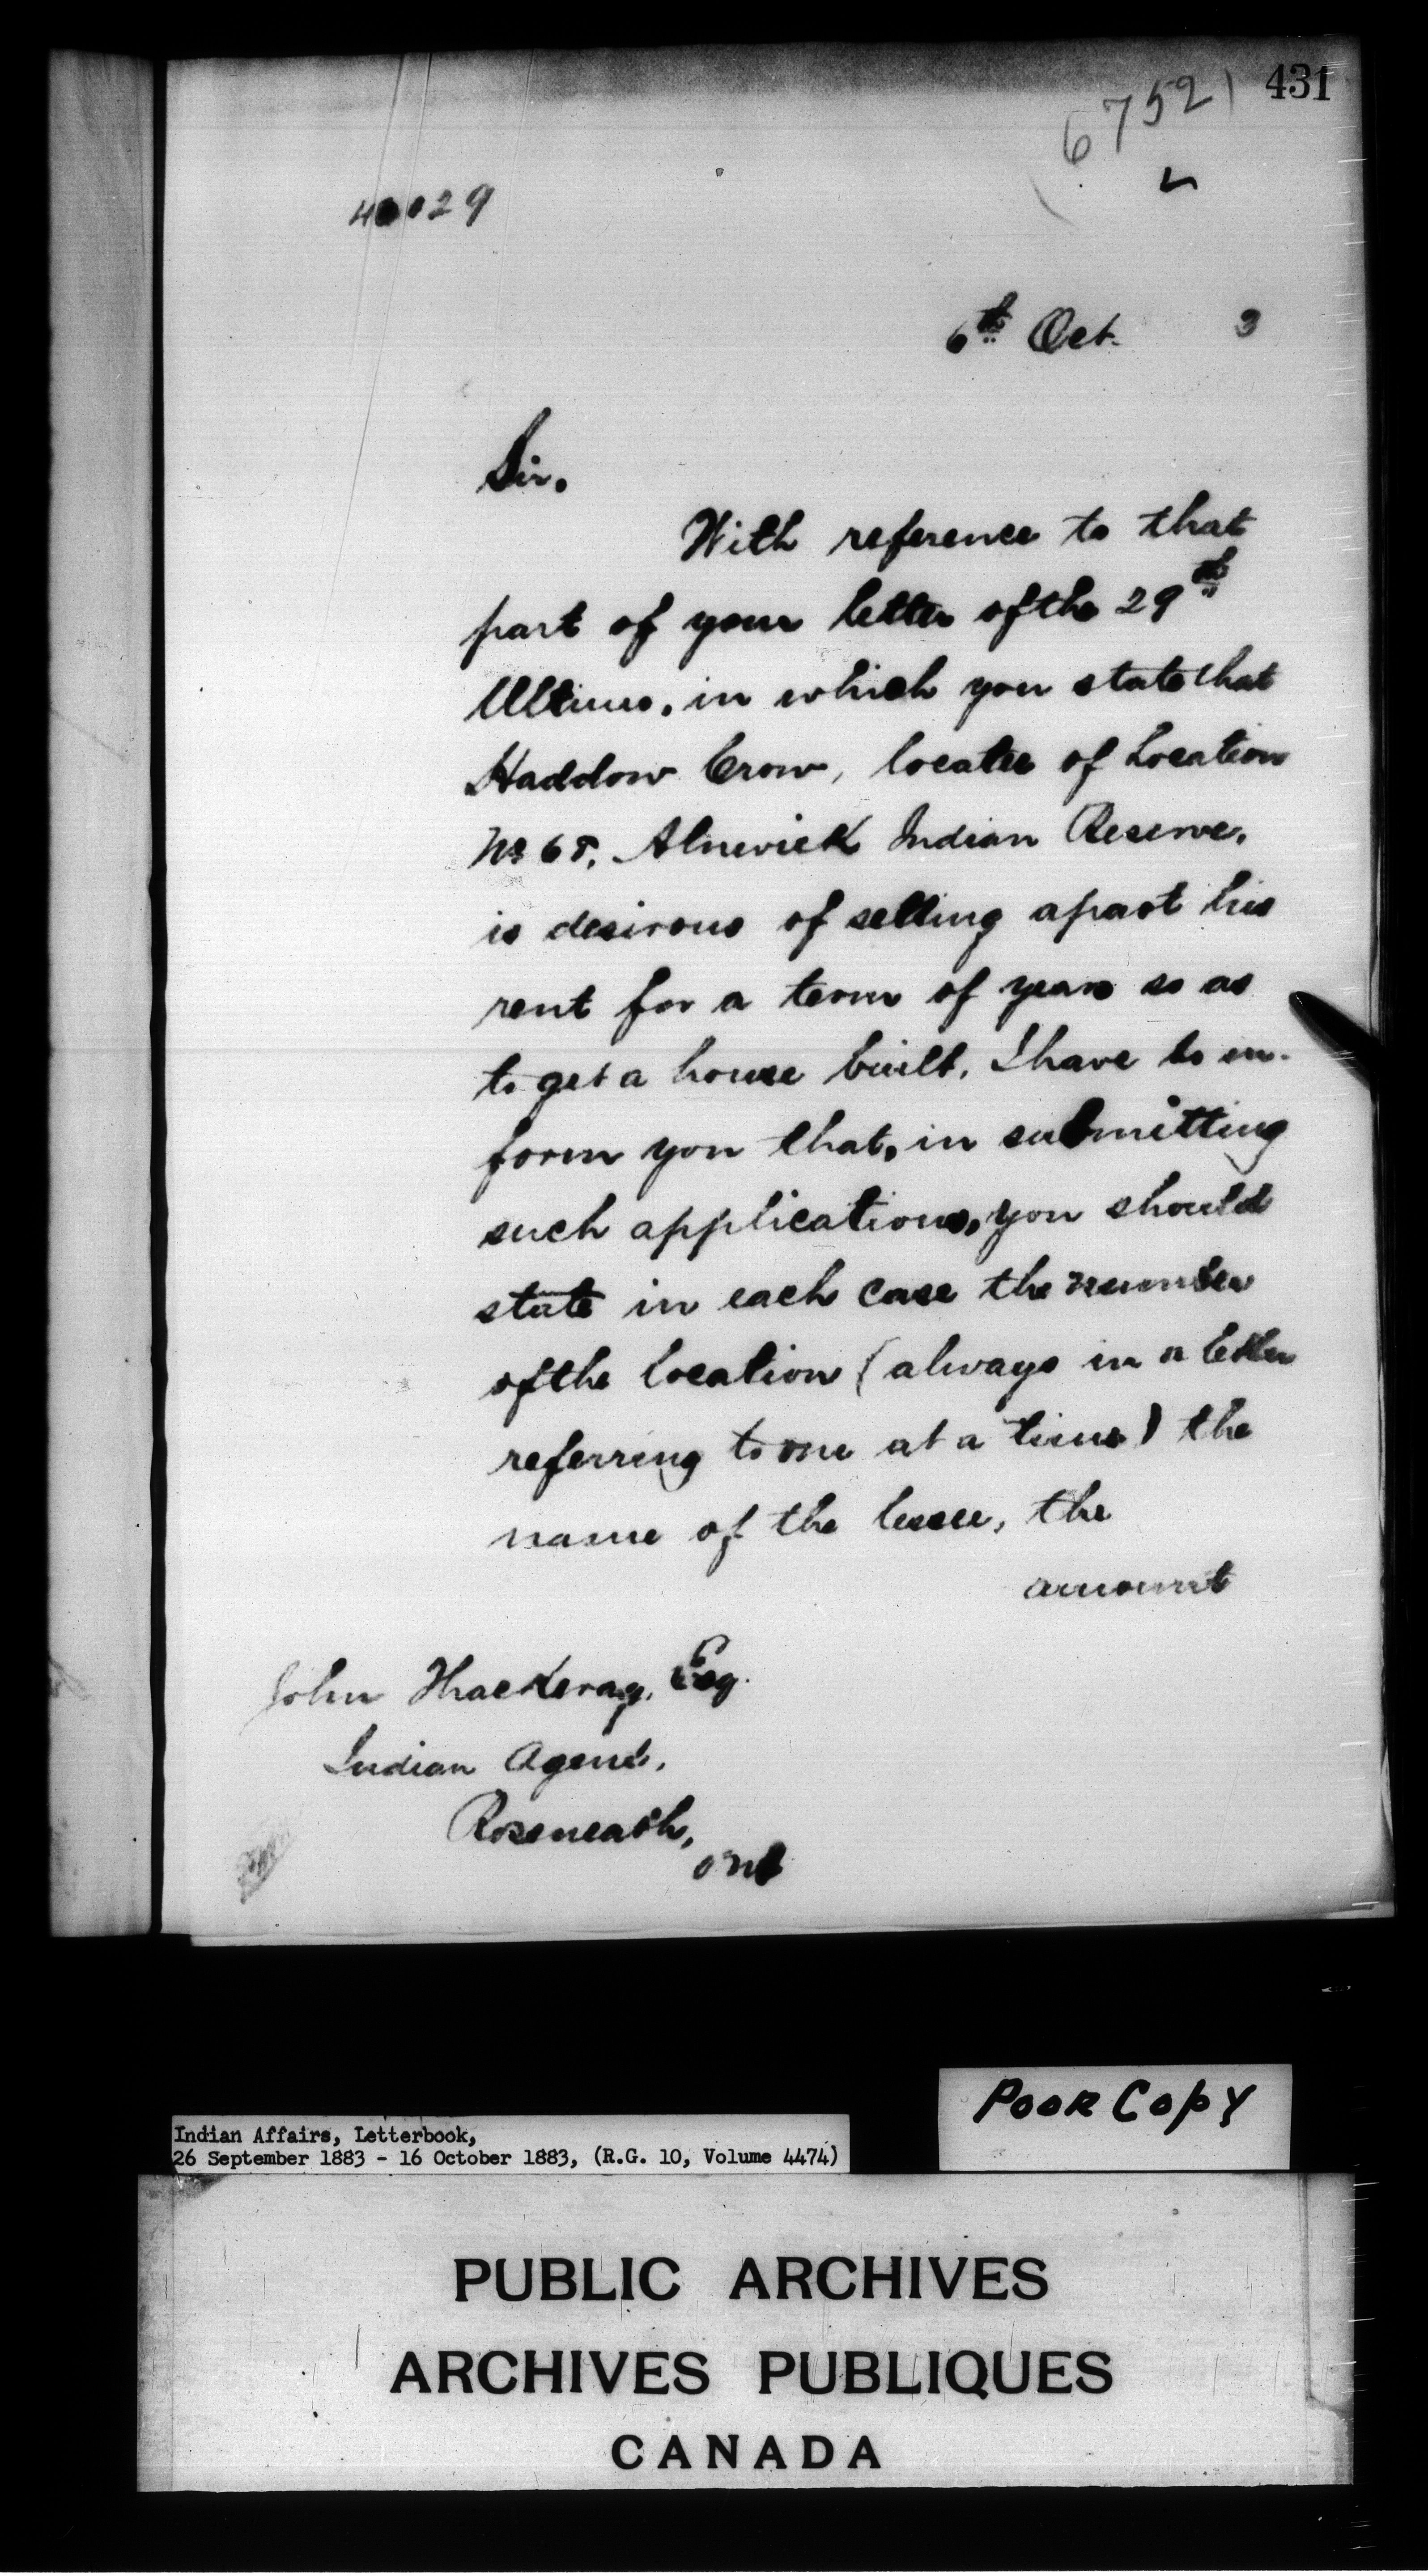 431
(6752)
40029
6th Oct. 3
Sir.
With reference to that
part of your letter of the 29th
Ultimo, in which you state that
Haddow Crow, locatee of Location
No 68, Alnwick Indian Reserve,
is desirous of setting apart his
rent for a term of years so as
to get a house built, I have to in-
form you that, in submitting
such applications, you should
state in each case the number
of the location (always in a letter
referring to one at a time) the
name of the lessee, the
amount
John Thackeray, Esq.
Indian Agent,
Roseneath,
Ont
POOR COPY
Indian Affairs, Letterbook,
26 September 1883 - 16 October 1883, (R.G. 10, Volume 4474)
PUBLIC ARCHIVES
ARCHIVES PUBLIQUES
CANADA